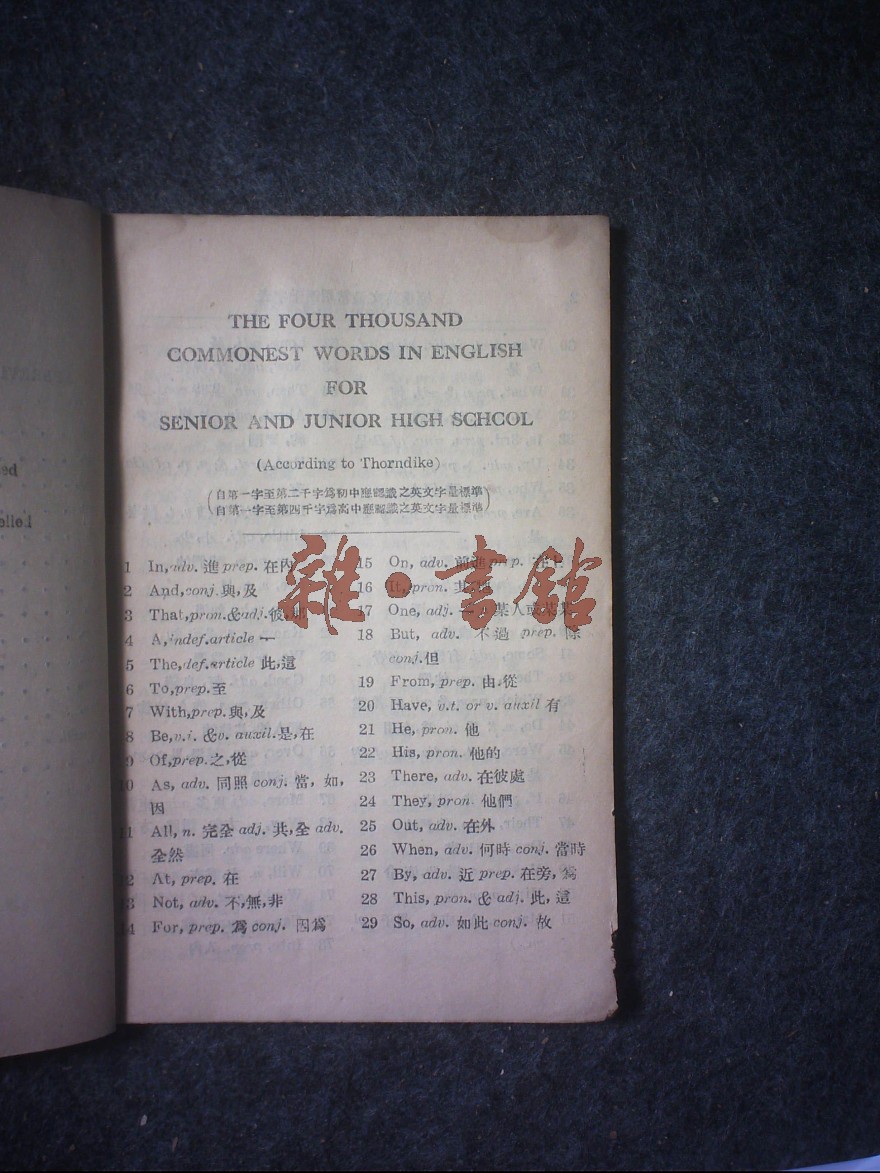 THE FOUR THOUSAND
COMMONEST WORDS IN ENGLISH
FOR
SENIOR AND JUNIOR HIGH SCHCOL
(According to Thorndike)
(自第一字至第二千字爲初中應認識之英文字量標準
自第一字至第四千字爲高中應認識之英文字量標準)
1 In, adv. 進 prep. 在內
2 And, conj. 與,及
3 That, pron. & adj. 彼,
4 A, indef. article 一
5 The, def. article 此,這
6 To, prep. 至
7 With, prep. 與,及
8 Be, v.i. & v. auxil. 是,在
9 Of, prep. 之,從
10 As, adv. 同照 conj. 當, 如,
因
11 All, n. 完全 adj. 共,全 adv.
全然
12 At, prep. 在
13 Not, adv. 不,無,非
14 For, prep. 爲 conj. 因爲
15 On, adv. 前進 prep. 在上
16 It, pron. 其,
17 One, adj. 一 某人或某
18 But, adv. 不過 prep. 除
conj. 但
19 From, prep. 由,從
20 Have, v.t. or v. auxil 有
21 He, pron. 他
22 His, pron. 他的
23 There, adv. 在彼處
24 They, pron. 他們
25 Out, adv. 在外
26 When, adv. 何時 conj. 當時
27 By, adv. 近 prep. 在旁, 爲
28 This, pron. & adj. 此, 這
29 So, adv. 如此 conj. 故
雜·書館
ed
elled